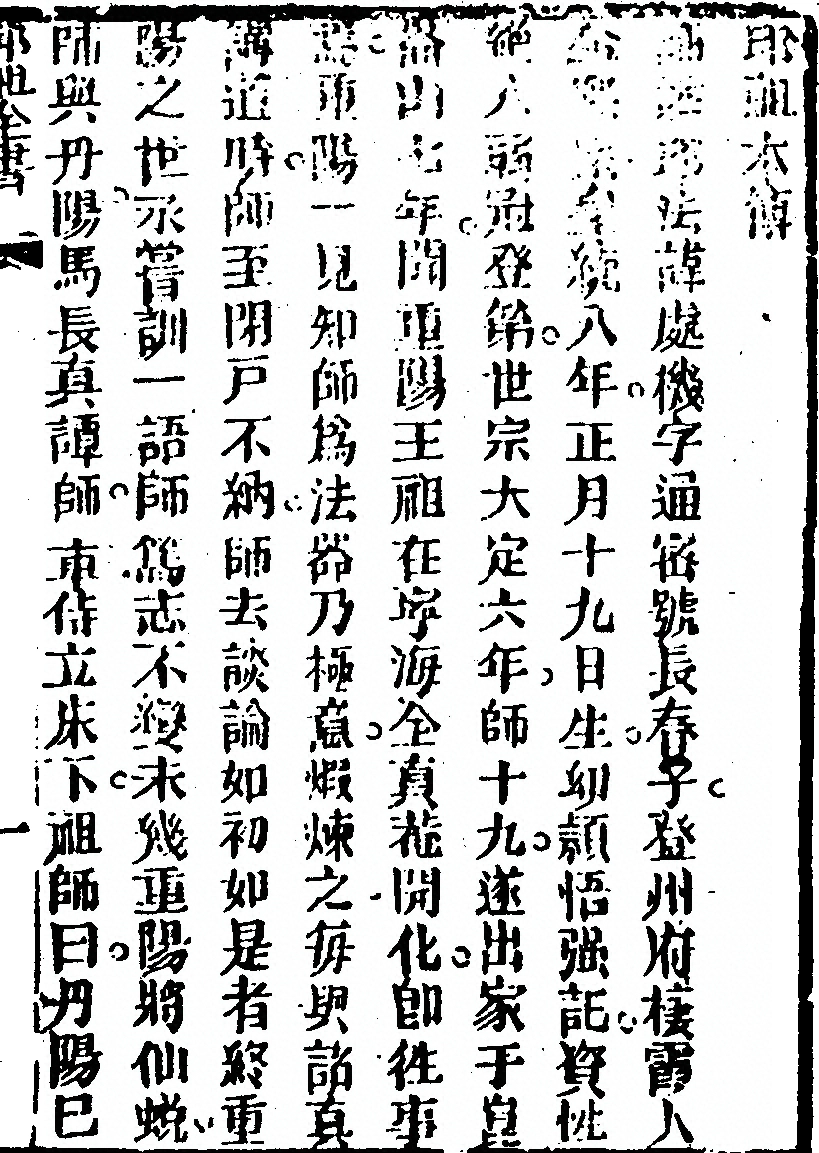 邱祖本傳
師姓邱氏諱處機字通密號長春子登州府棲霞人
金熙宗皇統八年正月十九日生幼穎悟强記資性
絕人弱冠登第世宗大定六年師十九遂出家于崑
崙山七年聞重陽王祖在寧海全真菴開化卽往事
焉重陽一見知師爲法器乃極意煆煉之每與諸真
講道時師至閉戸不納師去談論如初如是者終重
陽之世永嘗訓一語師篤志不變未幾重陽將仙蛻
師與丹陽馬長真譚師東侍立床下祖師曰丹陽巳
邱祖全書
一